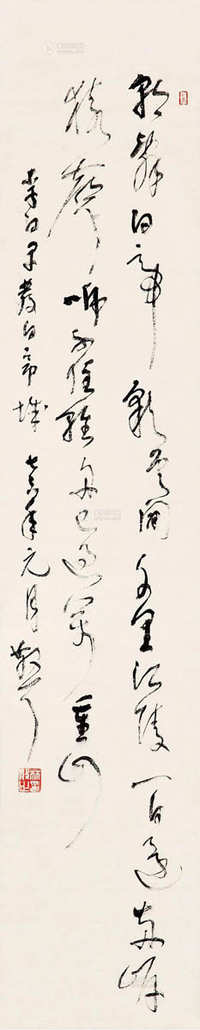 朝辞白帝彩雲間千里江陵一日還兩岸
猿聲啼不住輕舟已過萬重山
李白早發白帝城 七六年元月 散耳